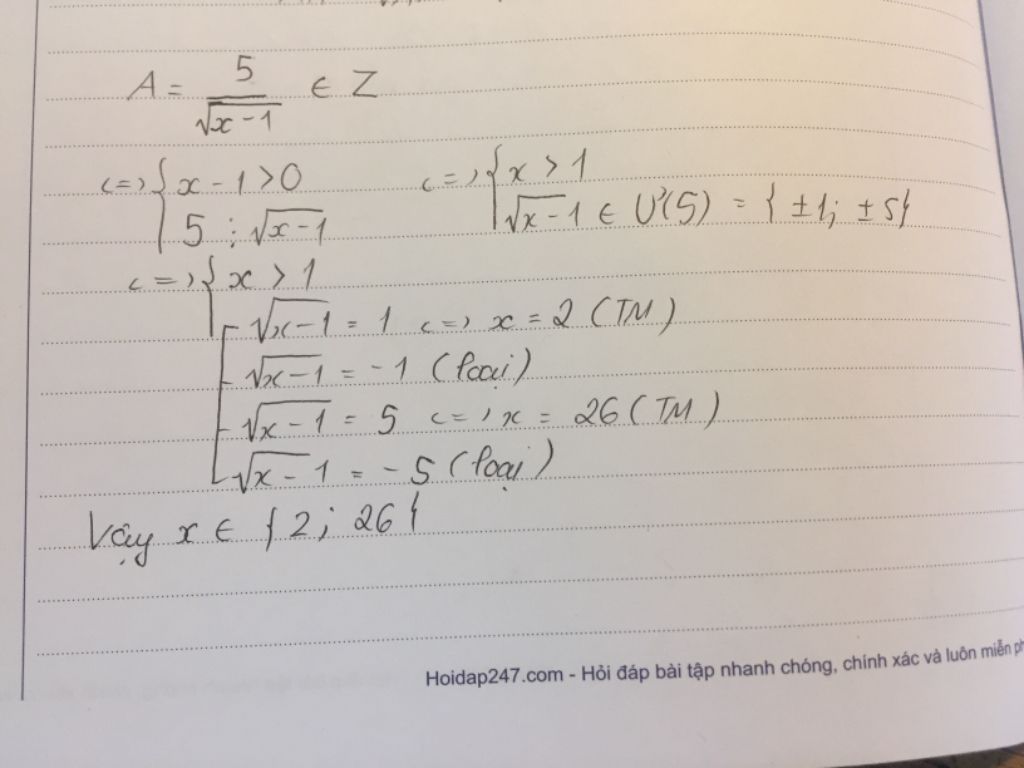 A = 5/√(x-1) ∈ Z
<=> { x - 1 > 0 <=> { x > 1
5 ⋮ √(x-1) √(x-1) ∈ Ư(5) = { ±1; ±5}
<=> { x > 1
√(x-1) = 1 <=> x = 2 (TM)
√(x-1) = -1 (loại)
√(x-1) = 5 <=> x = 26 (TM)
√(x-1) = -5 (loại)
Vậy x ∈ { 2; 26 }
Hoidap247.com - Hỏi đáp bài tập nhanh chóng, chính xác và luôn miễn ph